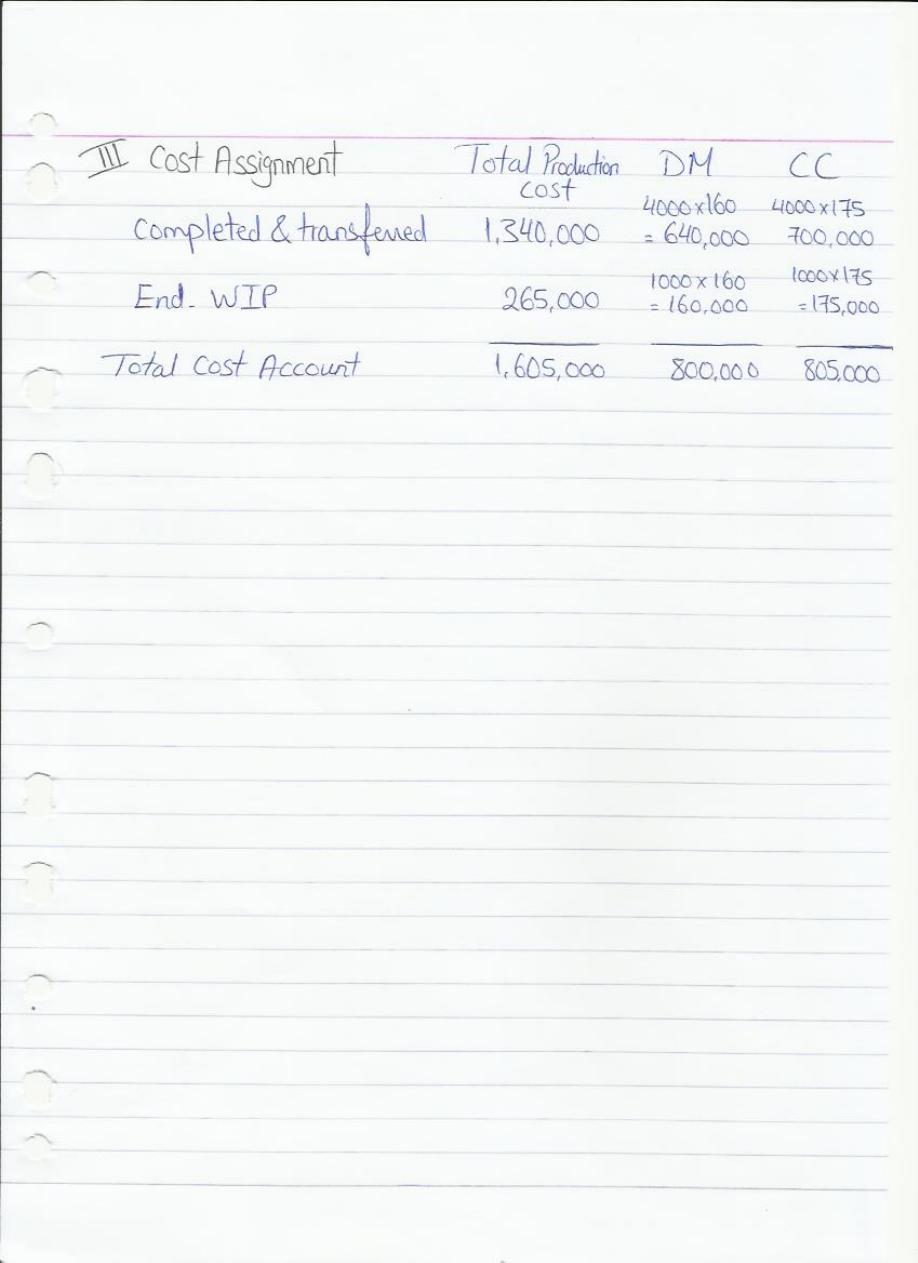 III Cost Assignment Total Production DM CC
cost
4000x160 4000x175
Completed & transferred 1,340,000 = 640,000 700,000
1000 x 160 1000x175
End. WIP 265,000 = 160,000 =175,000
Total Cost Account 1,605,000 800,000 805,000